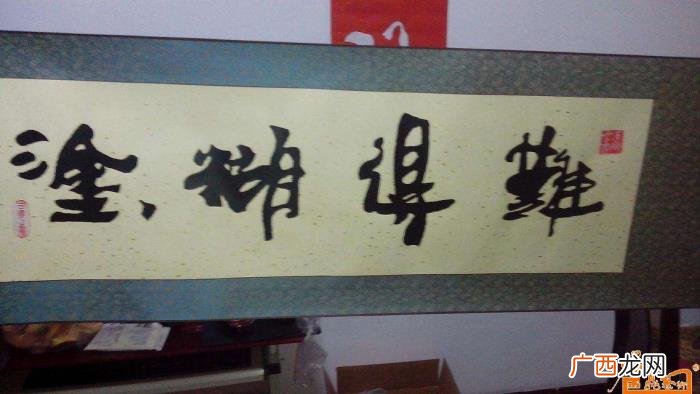 難得糊塗
广西龙网